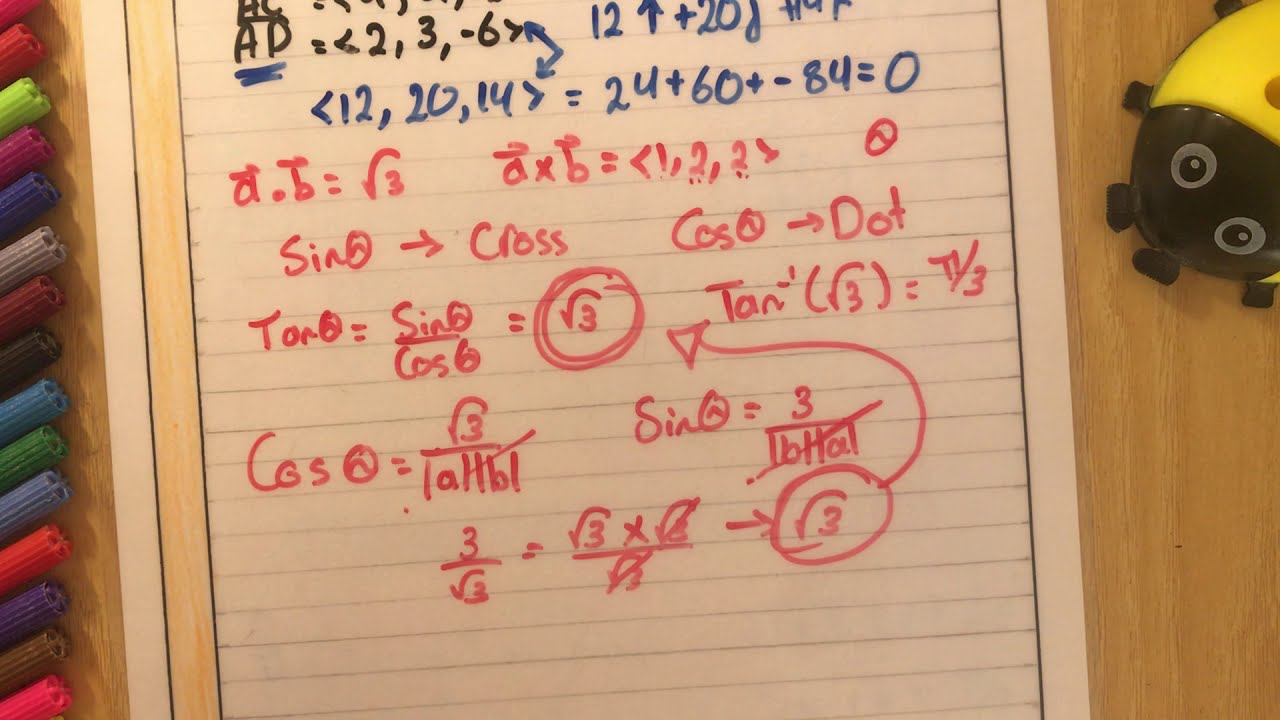 AD = <2, 3, -6>
<12, 20, 14> = 24+60+-84=0
a⃗.b⃗ = √3 a⃗×b⃗ = <1, 2, 2> θ
Sinθ → Cross Cosθ → Dot
Tanθ = Sinθ/Cosθ = √3 Tan⁻¹(√3) = π/3
Cosθ = √3/|a||b| Sinθ = 3/|b||a|
3/√3 = √3 × √3/√3 → √3